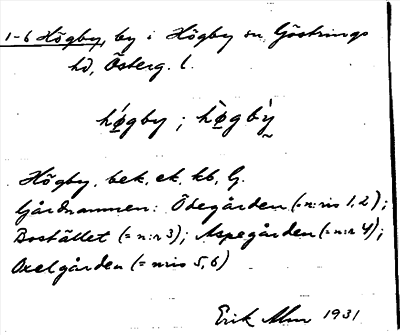 1-6 Högby, by i Högby sn, Göstrings
hd, Österg. l.
hǿgby ; hø̀gbỳ̰
Högby, bek. ek. kb, G.
Gårdnamnen: Ödegården (= n:ris 1,2);
Bostället (= n:r 3); Aspegården (= n:r 4);
Oxelgården (= n:ris 5,6)
Erik Alm 1931